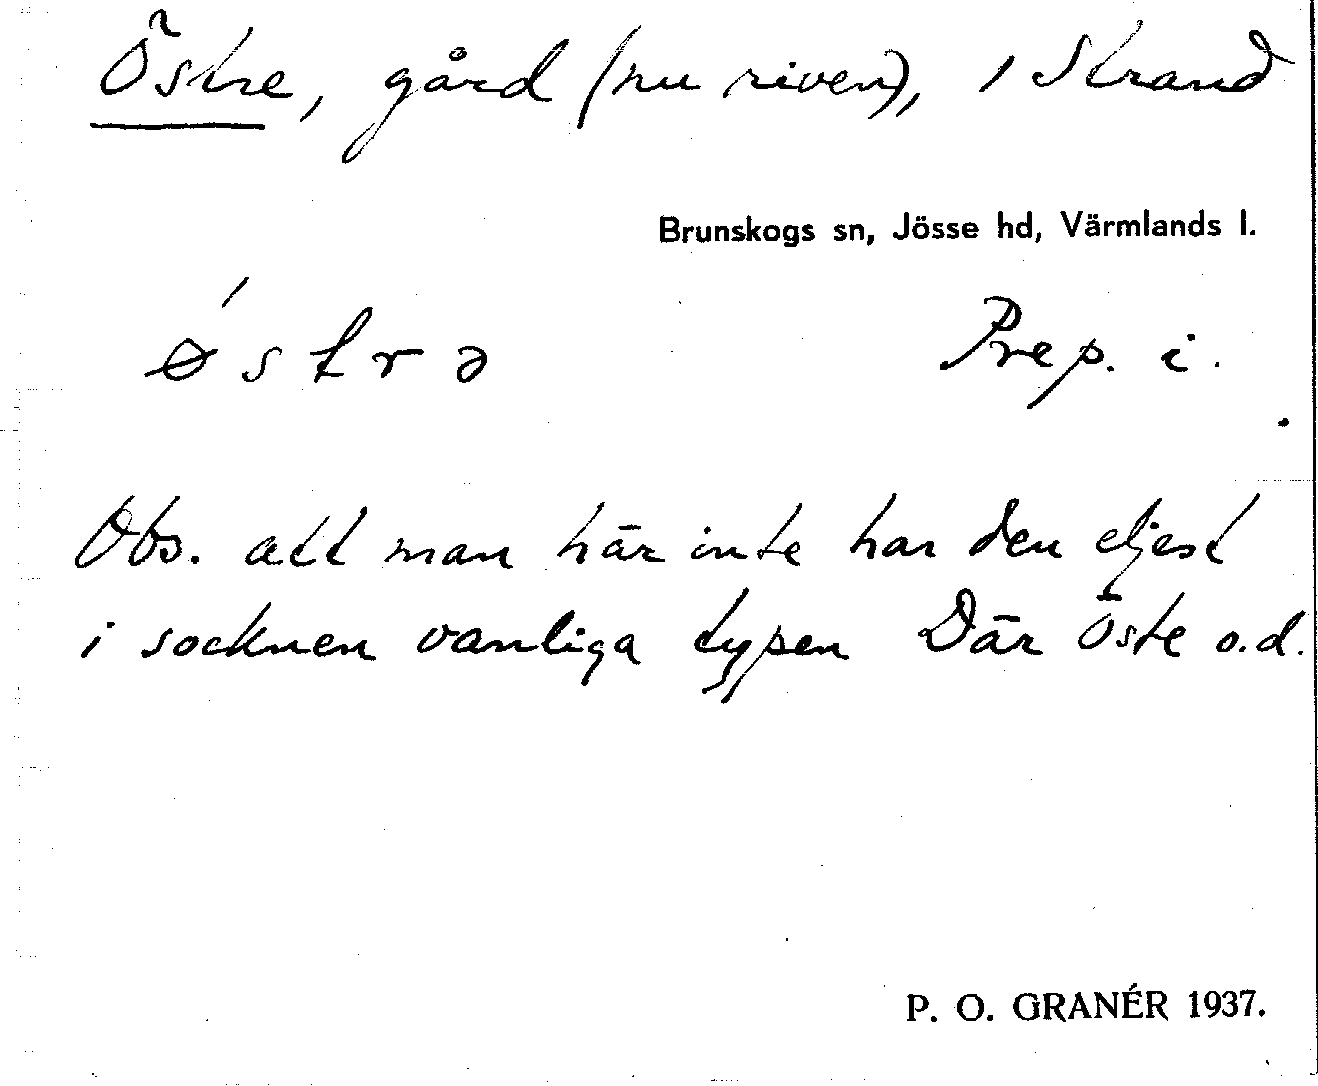 Östre, gård (nu riven), i Strand
Brunskogs sn, Jösse hd, Värmlands l.
ǿstrə Prep. i.
Obs. att man här inte har den eljest
i socknen vanliga typen Där öste o.d.
P. O. GRANÉR 1937.